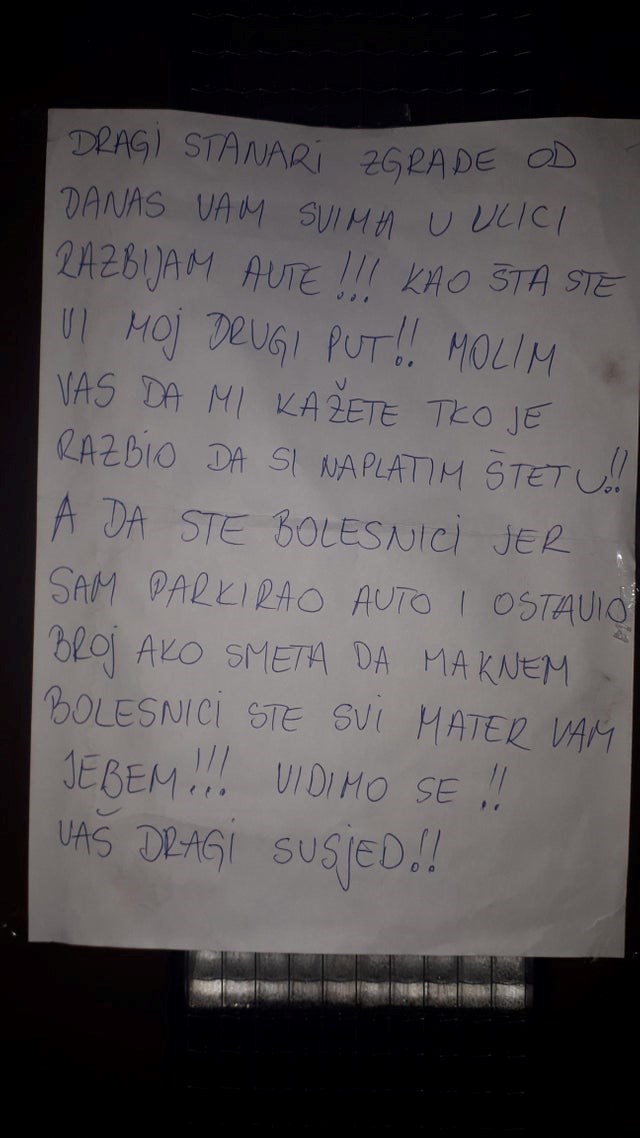 DRAGI STANARI ZGRADE OD
DANAS VAM SVIMA U ULICI
RAZBIJAM AUTE!!! KAO ŠTA STE
VI MOJ DRUGI PUT!! MOLIM
VAS DA MI KAŽETE TKO JE
RAZBIO DA SI NAPLATIM ŠTETU!!
A DA STE BOLESNICI JER
SAM PARKIRAO AUTO I OSTAVIO
BROJ AKO SMETA DA MAKNEM
BOLESNICI STE SVI MATER VAM
JEBEM!!! VIDIMO SE!!
VAŠ DRAGI SUSJED!!